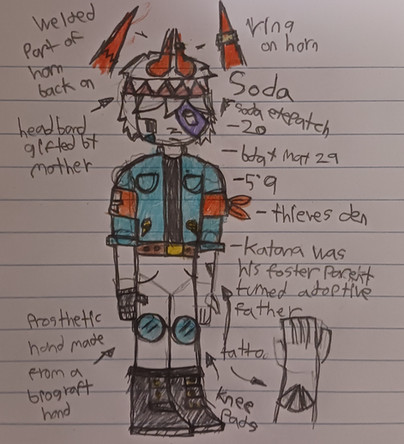 Welded
part of
horn
back on
ring
on horn
headband
gifted by
mother
Soda
Soda eyepatch
-20
- bday Mar 29
-5'9
- thieves den
- Katana was
his foster Parent
turned adoptive
father
Prosthetic
hand made
from a
biograft
hand
tatto
Knee
Pads